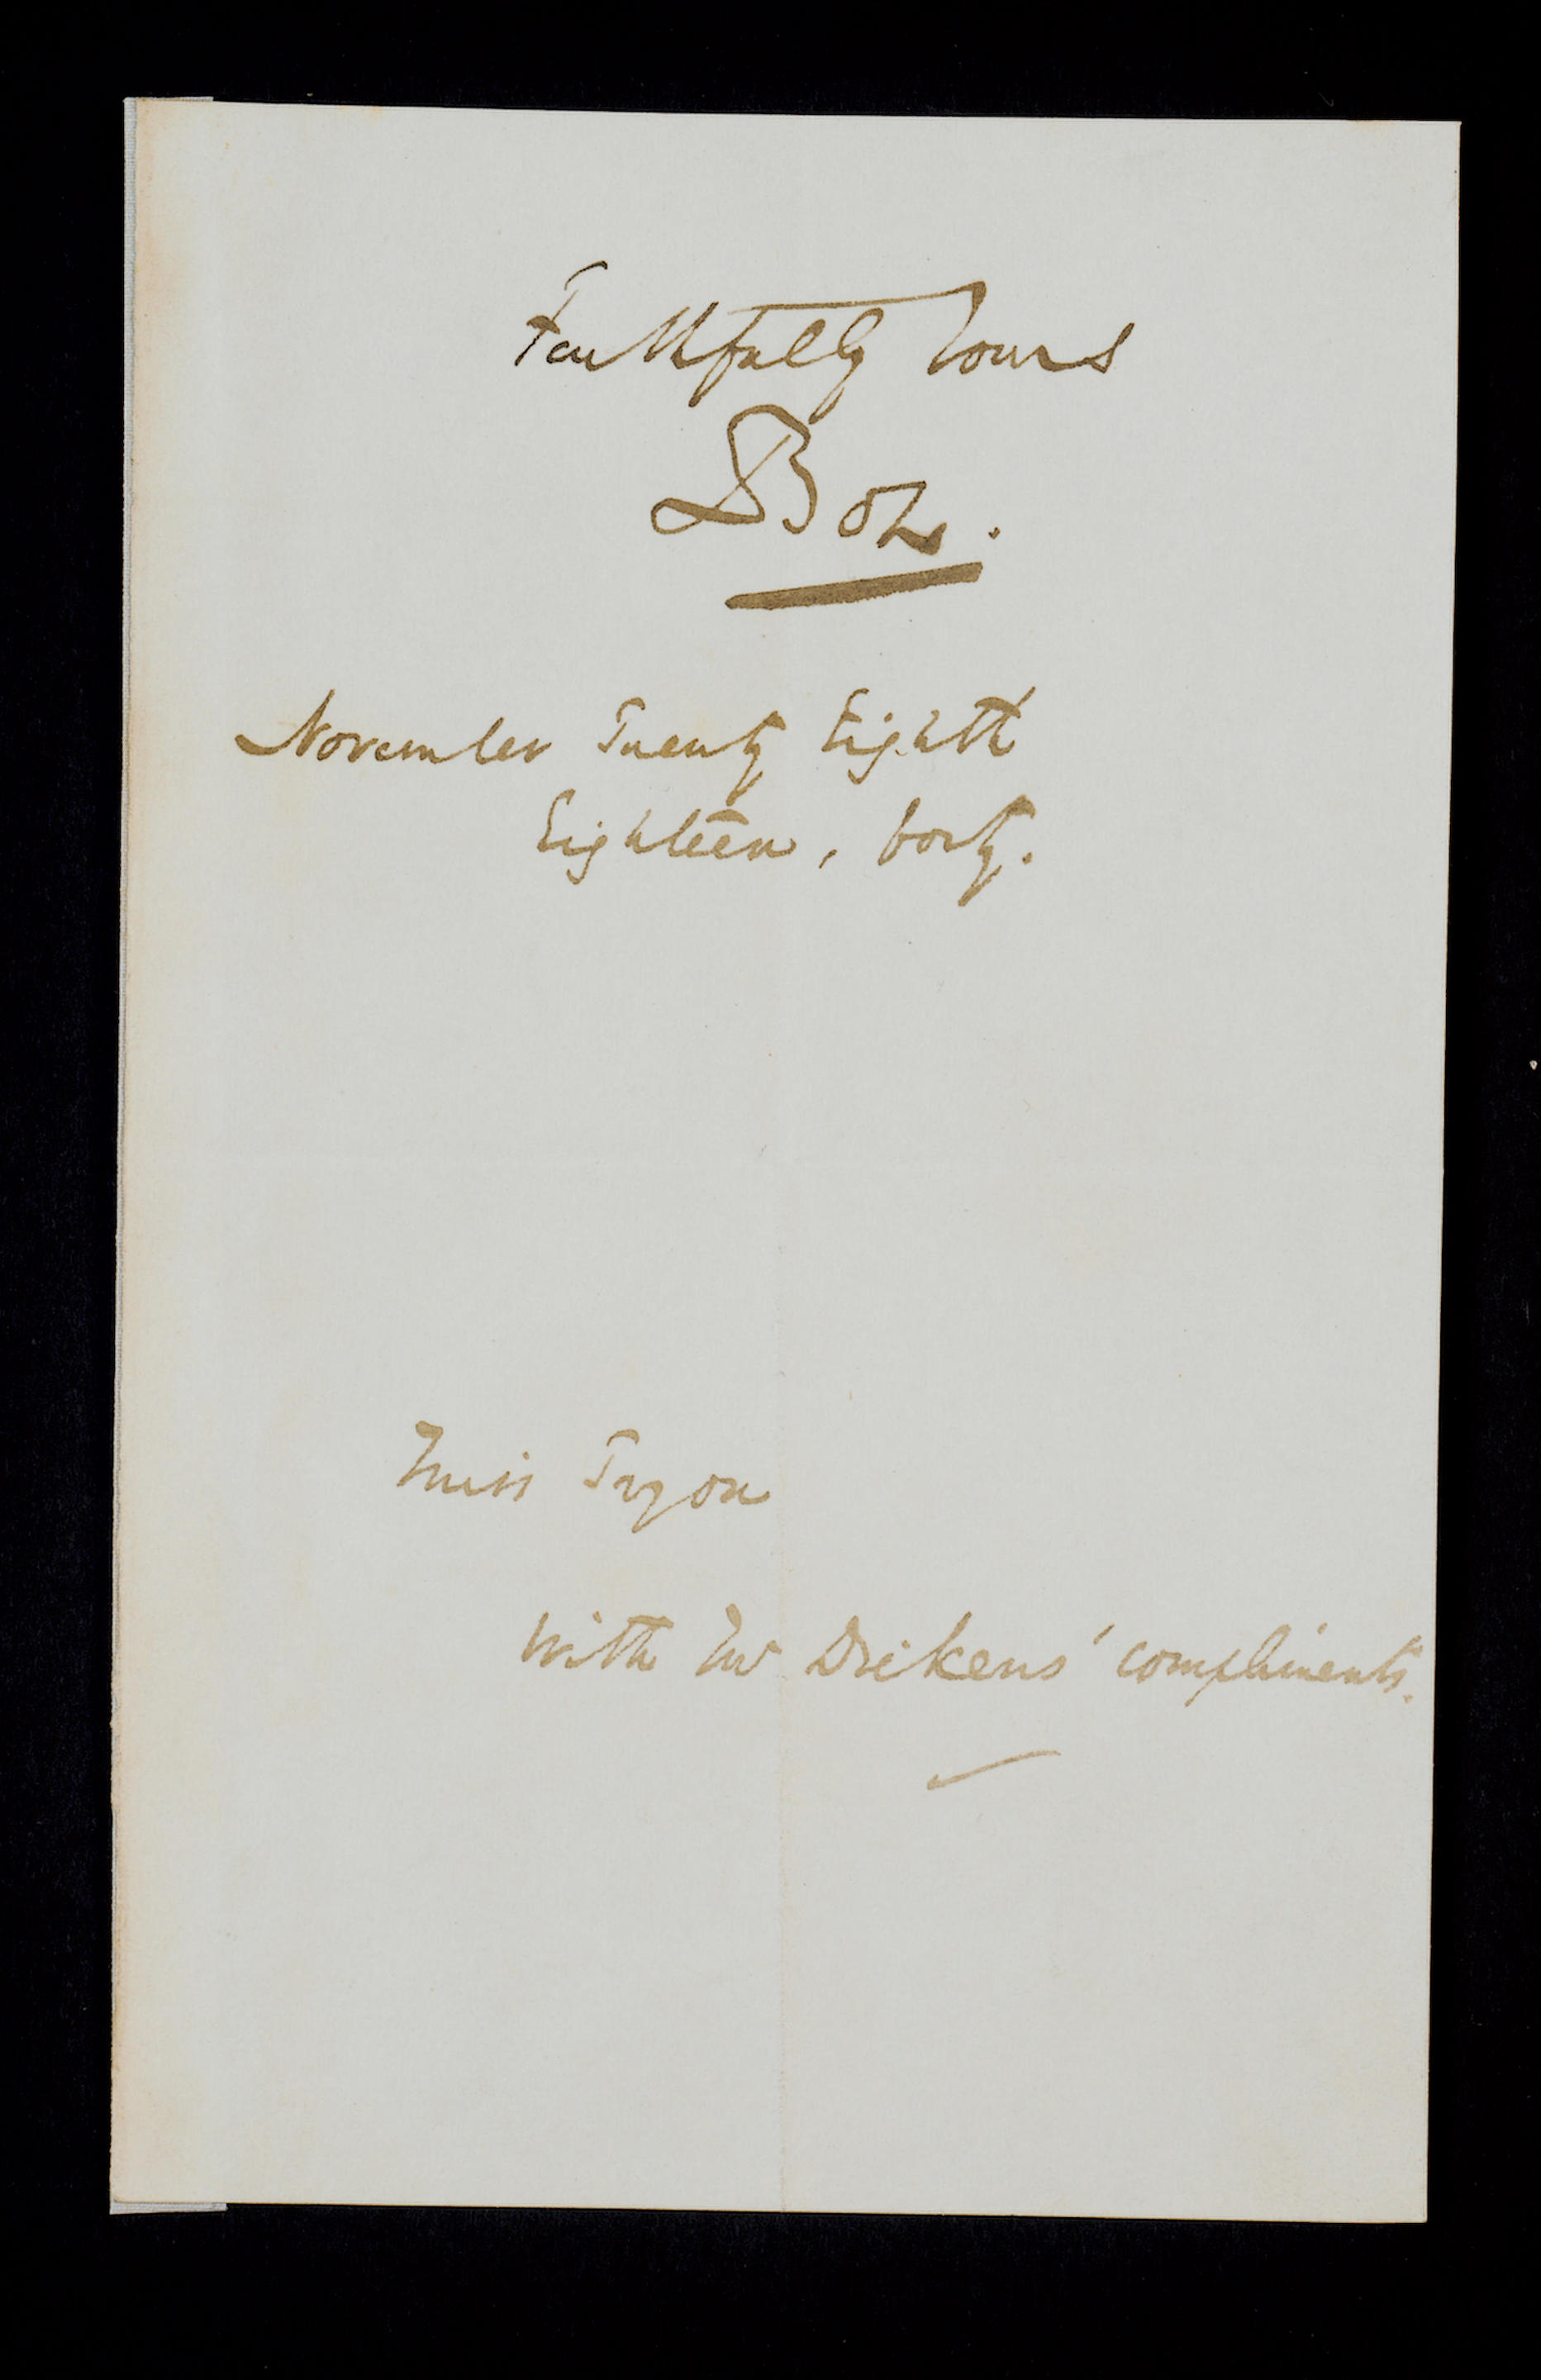 Faithfully Yours
Boz.
November Twenty Eighth
Eighteen, forty.
Miss Tryon
With Mr Dickens' compliments.